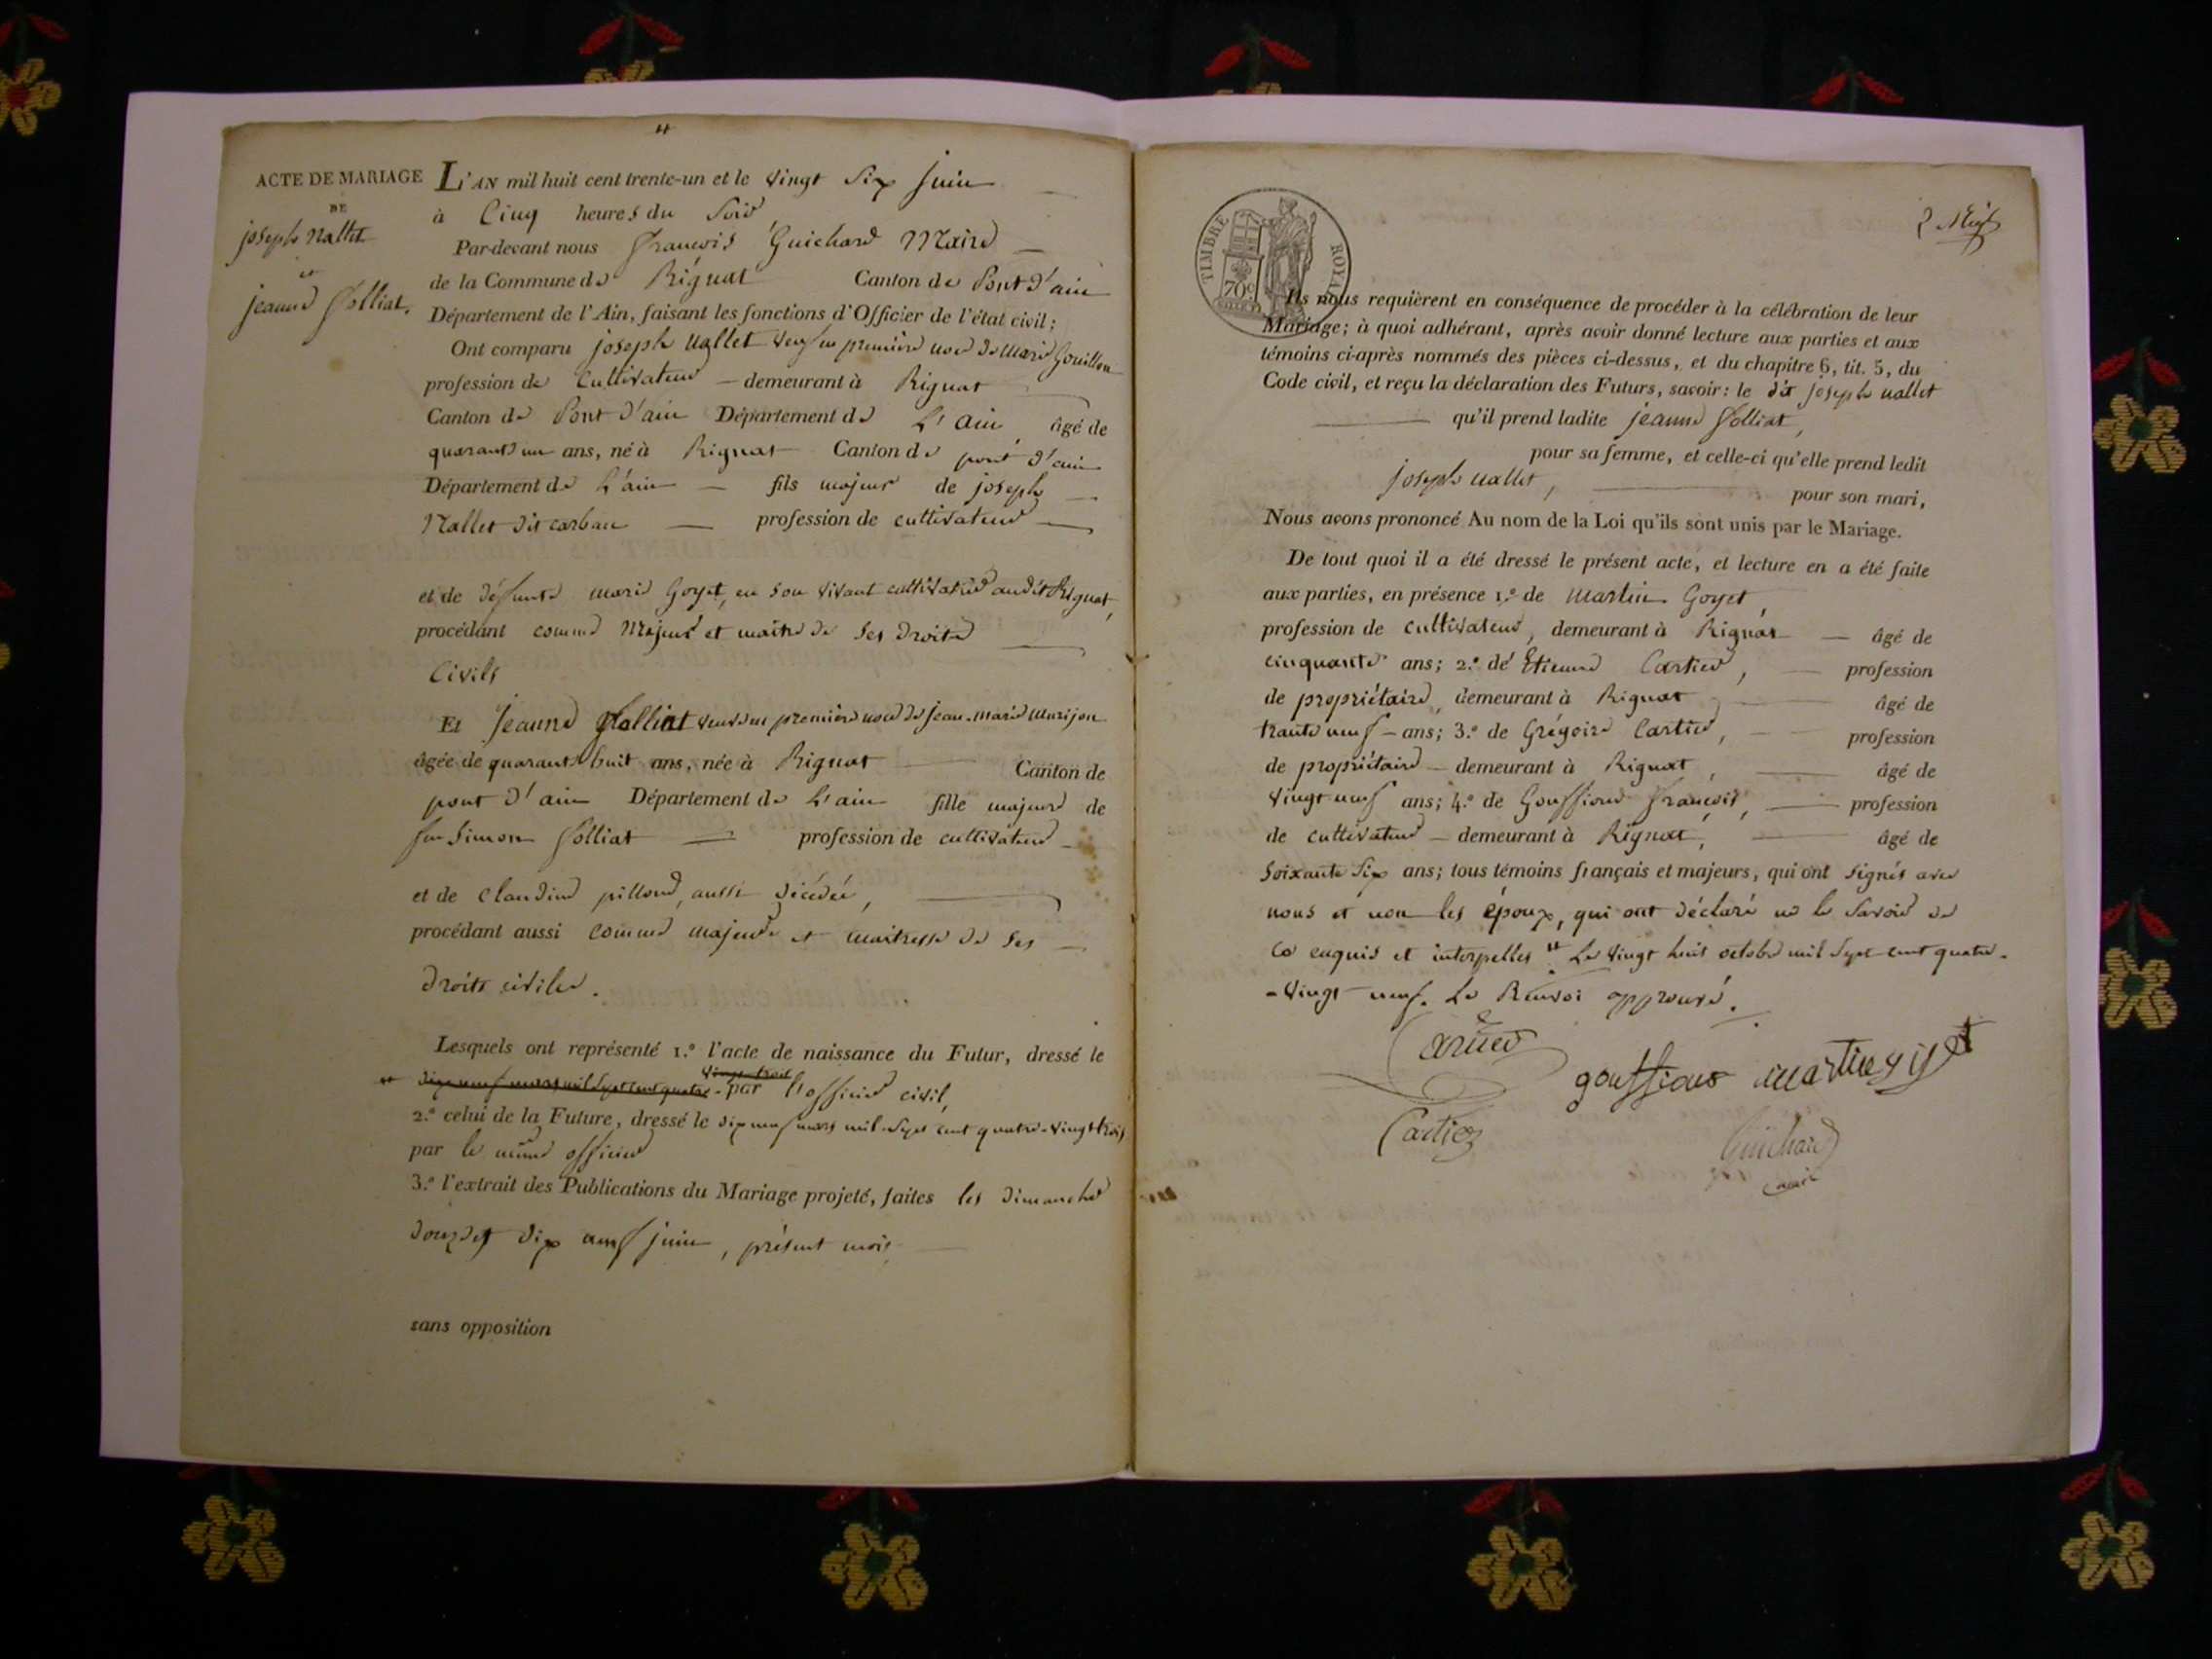 ACTE DE MARIAGE
DE
joseph Nallet
et
jeanne Folliat.
L'AN mil huit cent trente-un et le vingt six juin
à Cinq heures du Soir
Par-devant nous François Guichard Maire
de la Commune de Rignat Canton de Pont d'ain
Département de l'Ain, faisant les fonctions d'Officier de l'état civil;
Ont comparu joseph Nallet veuf en première noce de Marie Gouillon
profession de Cultivateur demeurant à Rignat
Canton de Pont d'ain Département de L'Ain âgé de
quarante un ans, né à Rignat Canton de pont d'ain
Département de L'ain fils majeur de joseph
Nallet dit carban profession de cultivateur
et de défunte marie Goyet, en son vivant cultivatrice audit Rignat,
procédant comme Majeur et maitre de ses droits
Civils
Et Jeanne Folliat veuve en première noce de jean-marie Murijon
âgée de quarante huit ans, née à Rignat Canton de
pont d'ain Département de L'ain fille majeure de
feu Simon Folliat profession de cultivateur
et de Claudine pilloud, aussi décédée,
procédant aussi comme majeure et maitresse de ses
droits civiles.
Lesquels ont représenté 1.º l'acte de naissance du Futur, dressé le
vingt trois
dix neuf mars mil sept cent quatre- par l'officier civil,
2.º celui de la Future, dressé le dix neuf mars mil-sept cent quatre-vingt trois
par le même officier
3.º l'extrait des Publications du Mariage projeté, faites les dimanches
douze et dix neuf juin, présent mois
sans opposition
TIMBRE ROYAL
70c
Ils nous requièrent en conséquence de procéder à la célébration de leur
Mariage; à quoi adhérant, après avoir donné lecture aux parties et aux
témoins ci-après nommés des pièces ci-dessus, et du chapitre 6, tit. 5, du
Code civil, et reçu la déclaration des Futurs, savoir: le dit joseph nallet
qu'il prend ladite jeanne Folliat,
pour sa femme, et celle-ci qu'elle prend ledit
joseph nallet, pour son mari,
Nous avons prononcé Au nom de la Loi qu'ils sont unis par le Mariage.
De tout quoi il a été dressé le présent acte, et lecture en a été faite
aux parties, en présence 1.º de Martin Goyet,
profession de cultivateur, demeurant à Rignat âgé de
cinquante ans; 2.º de Etienne Cartier, profession
de propriétaire, demeurant à Rignat âgé de
trante neuf ans; 3.º de Grégoire Cartier, profession
de propriétaire demeurant à Rignat, âgé de
vingt neuf ans; 4.º de Gouffioux François, profession
de cultivateur demeurant à Rignat, âgé de
soixante six ans; tous témoins français et majeurs, qui ont signés avec
nous et non les époux, qui ont déclaré ne le Savoir de
ce enquis et interpelles Le vingt huit octobre mil sept cent quatre-
-vingt neuf. Le Renvoi approuvé.
Cartier
gouffioux martin goyet
Cartier
Guichard
maire